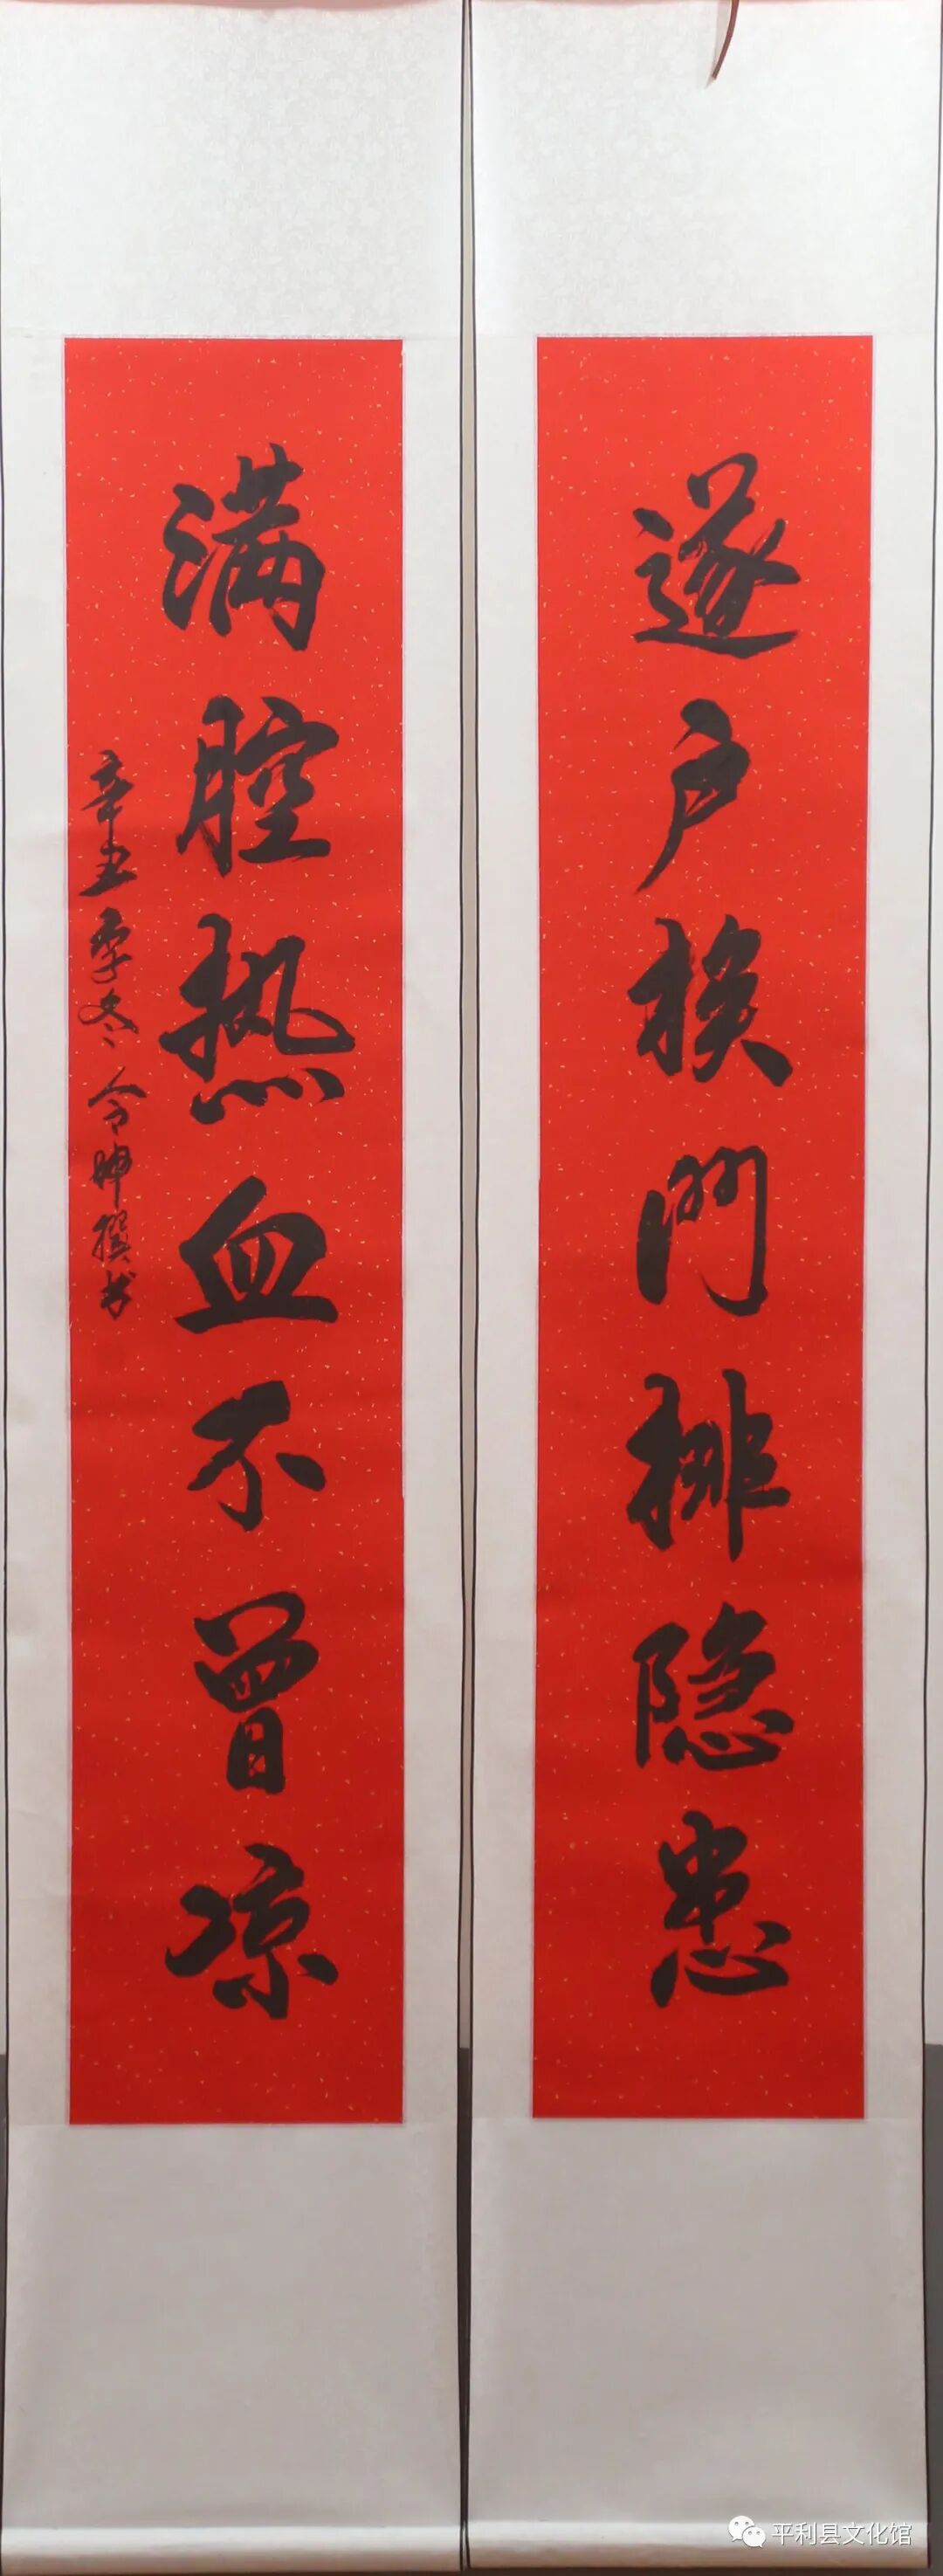 遂户挨门排隐患
满腔热血不曾凉
辛丑季冬 令坤撰书
平利县文化馆